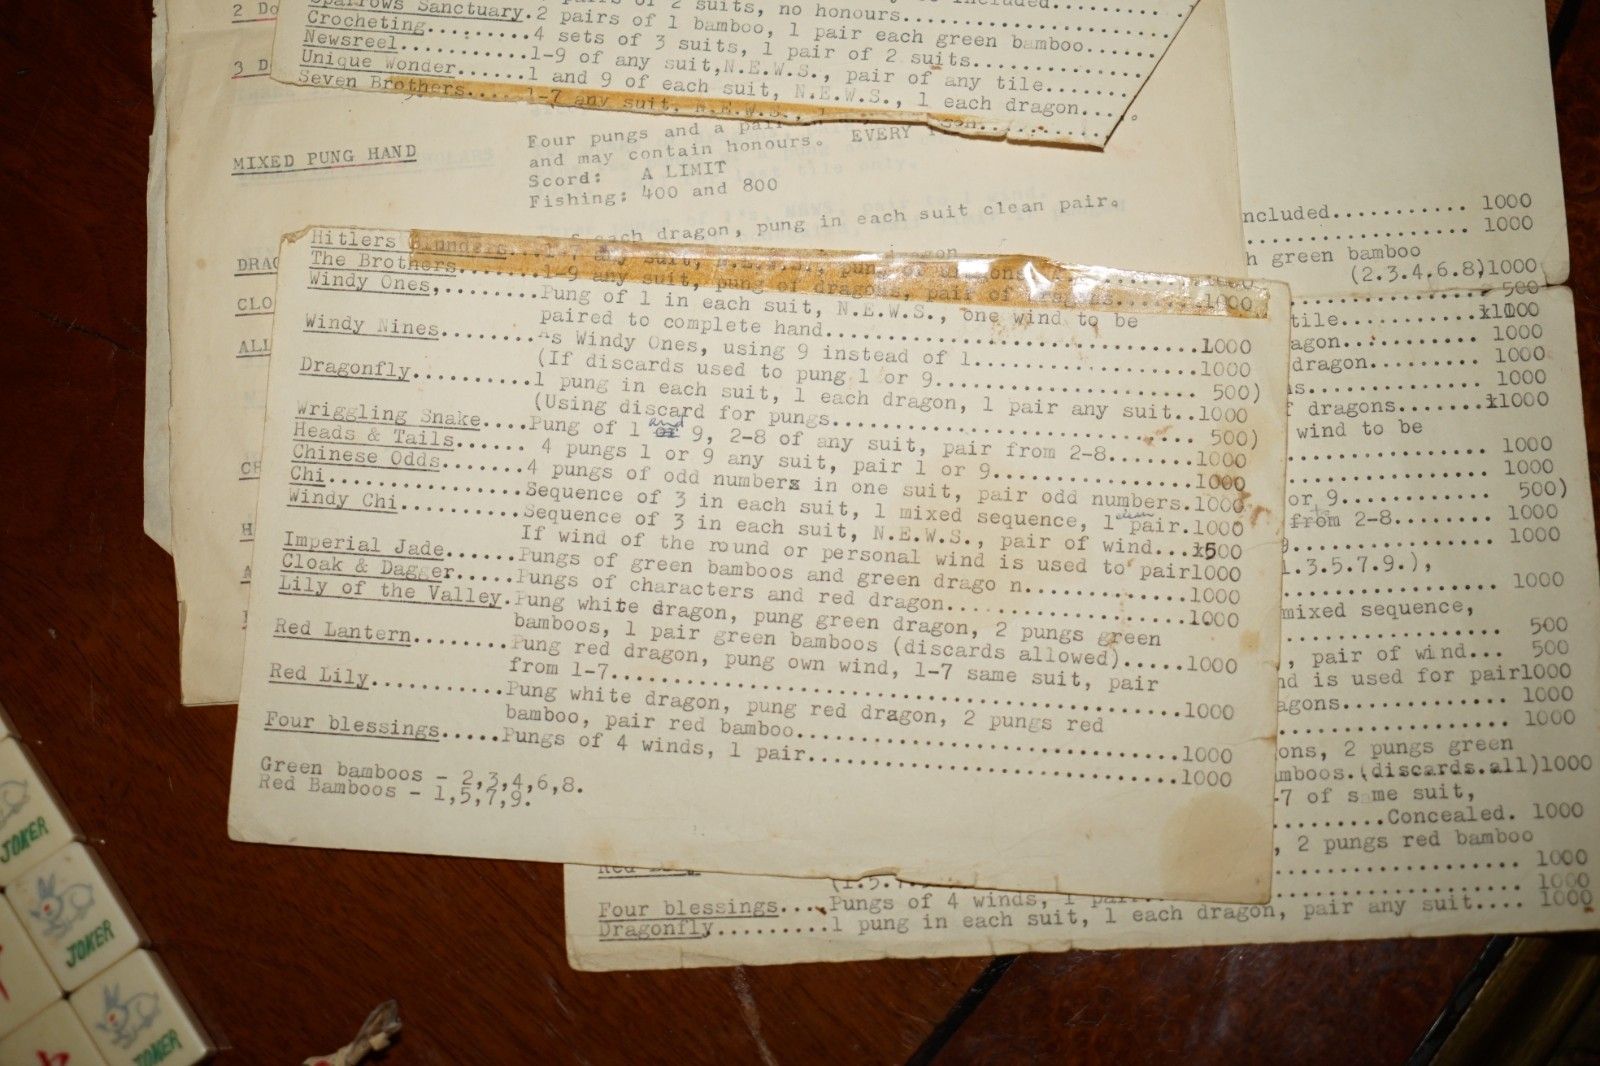 2 Do
3 D
2 suits, no honours
Sparrows Sanctuary.2 pairs of 1 bamboo, 1 pair each green bamboo......
Crocheting.........4 sets of 3 suits, 1 pair of 2 suits...............
Newsreel...........1-9 of any suit,N.E.W.S., pair of any tile........
Unique Wonder......1 and 9 of each suit, N.E.W.S., 1 each dragon....
Seven Brothers.....1-7 any suit. N.E.W.S.,
MIXED PUNG HAND
Four pungs and a pair
and may contain honours. EVERY
Scord: A LIMIT
Fishing: 400 and 800
each dragon, pung in each suit clean pair.
dragon
DRAG
CLO
ALL
CH
H
Hitlers Blunders...1-7 any suit, N.E.W.S., pung of dragons.
The Brothers.......1-9 any suit, pung of dragons, pair of dragons........1000
Windy Ones,........Pung of 1 in each suit, N.E.W.S., one wind to be
paired to complete hand.................................1000
Windy Nines........As Windy Ones, using 9 instead of 1....................1000
(If discards used to pung 1 or 9....................... 500)
Dragonfly..........1 pung in each suit, 1 each dragon, 1 pair any suit..1000
(Using discard for pungs............................... 500)
Wriggling Snake....Pung of 1 and 9, 2-8 of any suit, pair from 2-8.......1000
Heads & Tails...... 4 pungs 1 or 9 any suit, pair 1 or 9.................1000
Chinese Odds.......4 pungs of odd numbers in one suit, pair odd numbers.1000
Chi................Sequence of 3 in each suit, 1 mixed sequence, 1 clean pair.1000
Windy Chi..........Sequence of 3 in each suit, N.E.W.S., pair of wind...500
If wind of the round or personal wind is used to pair1000
Imperial Jade......Pungs of green bamboos and green drago n..............1000
Cloak & Dagger.....Pungs of characters and red dragon...................1000
Lily of the Valley.Pung white dragon, pung green dragon, 2 pungs green
bamboos, 1 pair green bamboos (discards allowed).....1000
Red Lantern........Pung red dragon, pung own wind, 1-7 same suit, pair
from 1-7...............................................1000
Red Lily...........Pung white dragon, pung red dragon, 2 pungs red
bamboo, pair red bamboo................................1000
Four blessings.....Pungs of 4 winds, 1 pair..............................1000
Green bamboos - 2,3,4,6,8.
Red Bamboos - 1,5,7,9.
ncluded........... 1000
................ 1000
h green bamboo
(2.3.4.6.8)1000
500
tile............1000
agon........... 1000
dragon......... 1000
s.............. 1000
f dragons.......1000
wind to be
............... 1000
............... 1000
or 9............ 500)
from 2-8........ 1000
9............... 1000
1.3.5.7.9.),
............... 1000
mixed sequence,
............... 500
, pair of wind... 500
nd is used for pair1000
agons.......... 1000
............... 1000
ons, 2 pungs green
mboos.(discards.all)1000
-7 of s me suit,
..........Concealed. 1000
, 2 pungs red bamboo
............... 1000
............... 1000
Four blessings....Pungs of 4 winds, 1 pair
Dragonfly.........1 pung in each suit, 1 each dragon, pair any suit.... 1000
JOKER
JOKER
JOKER